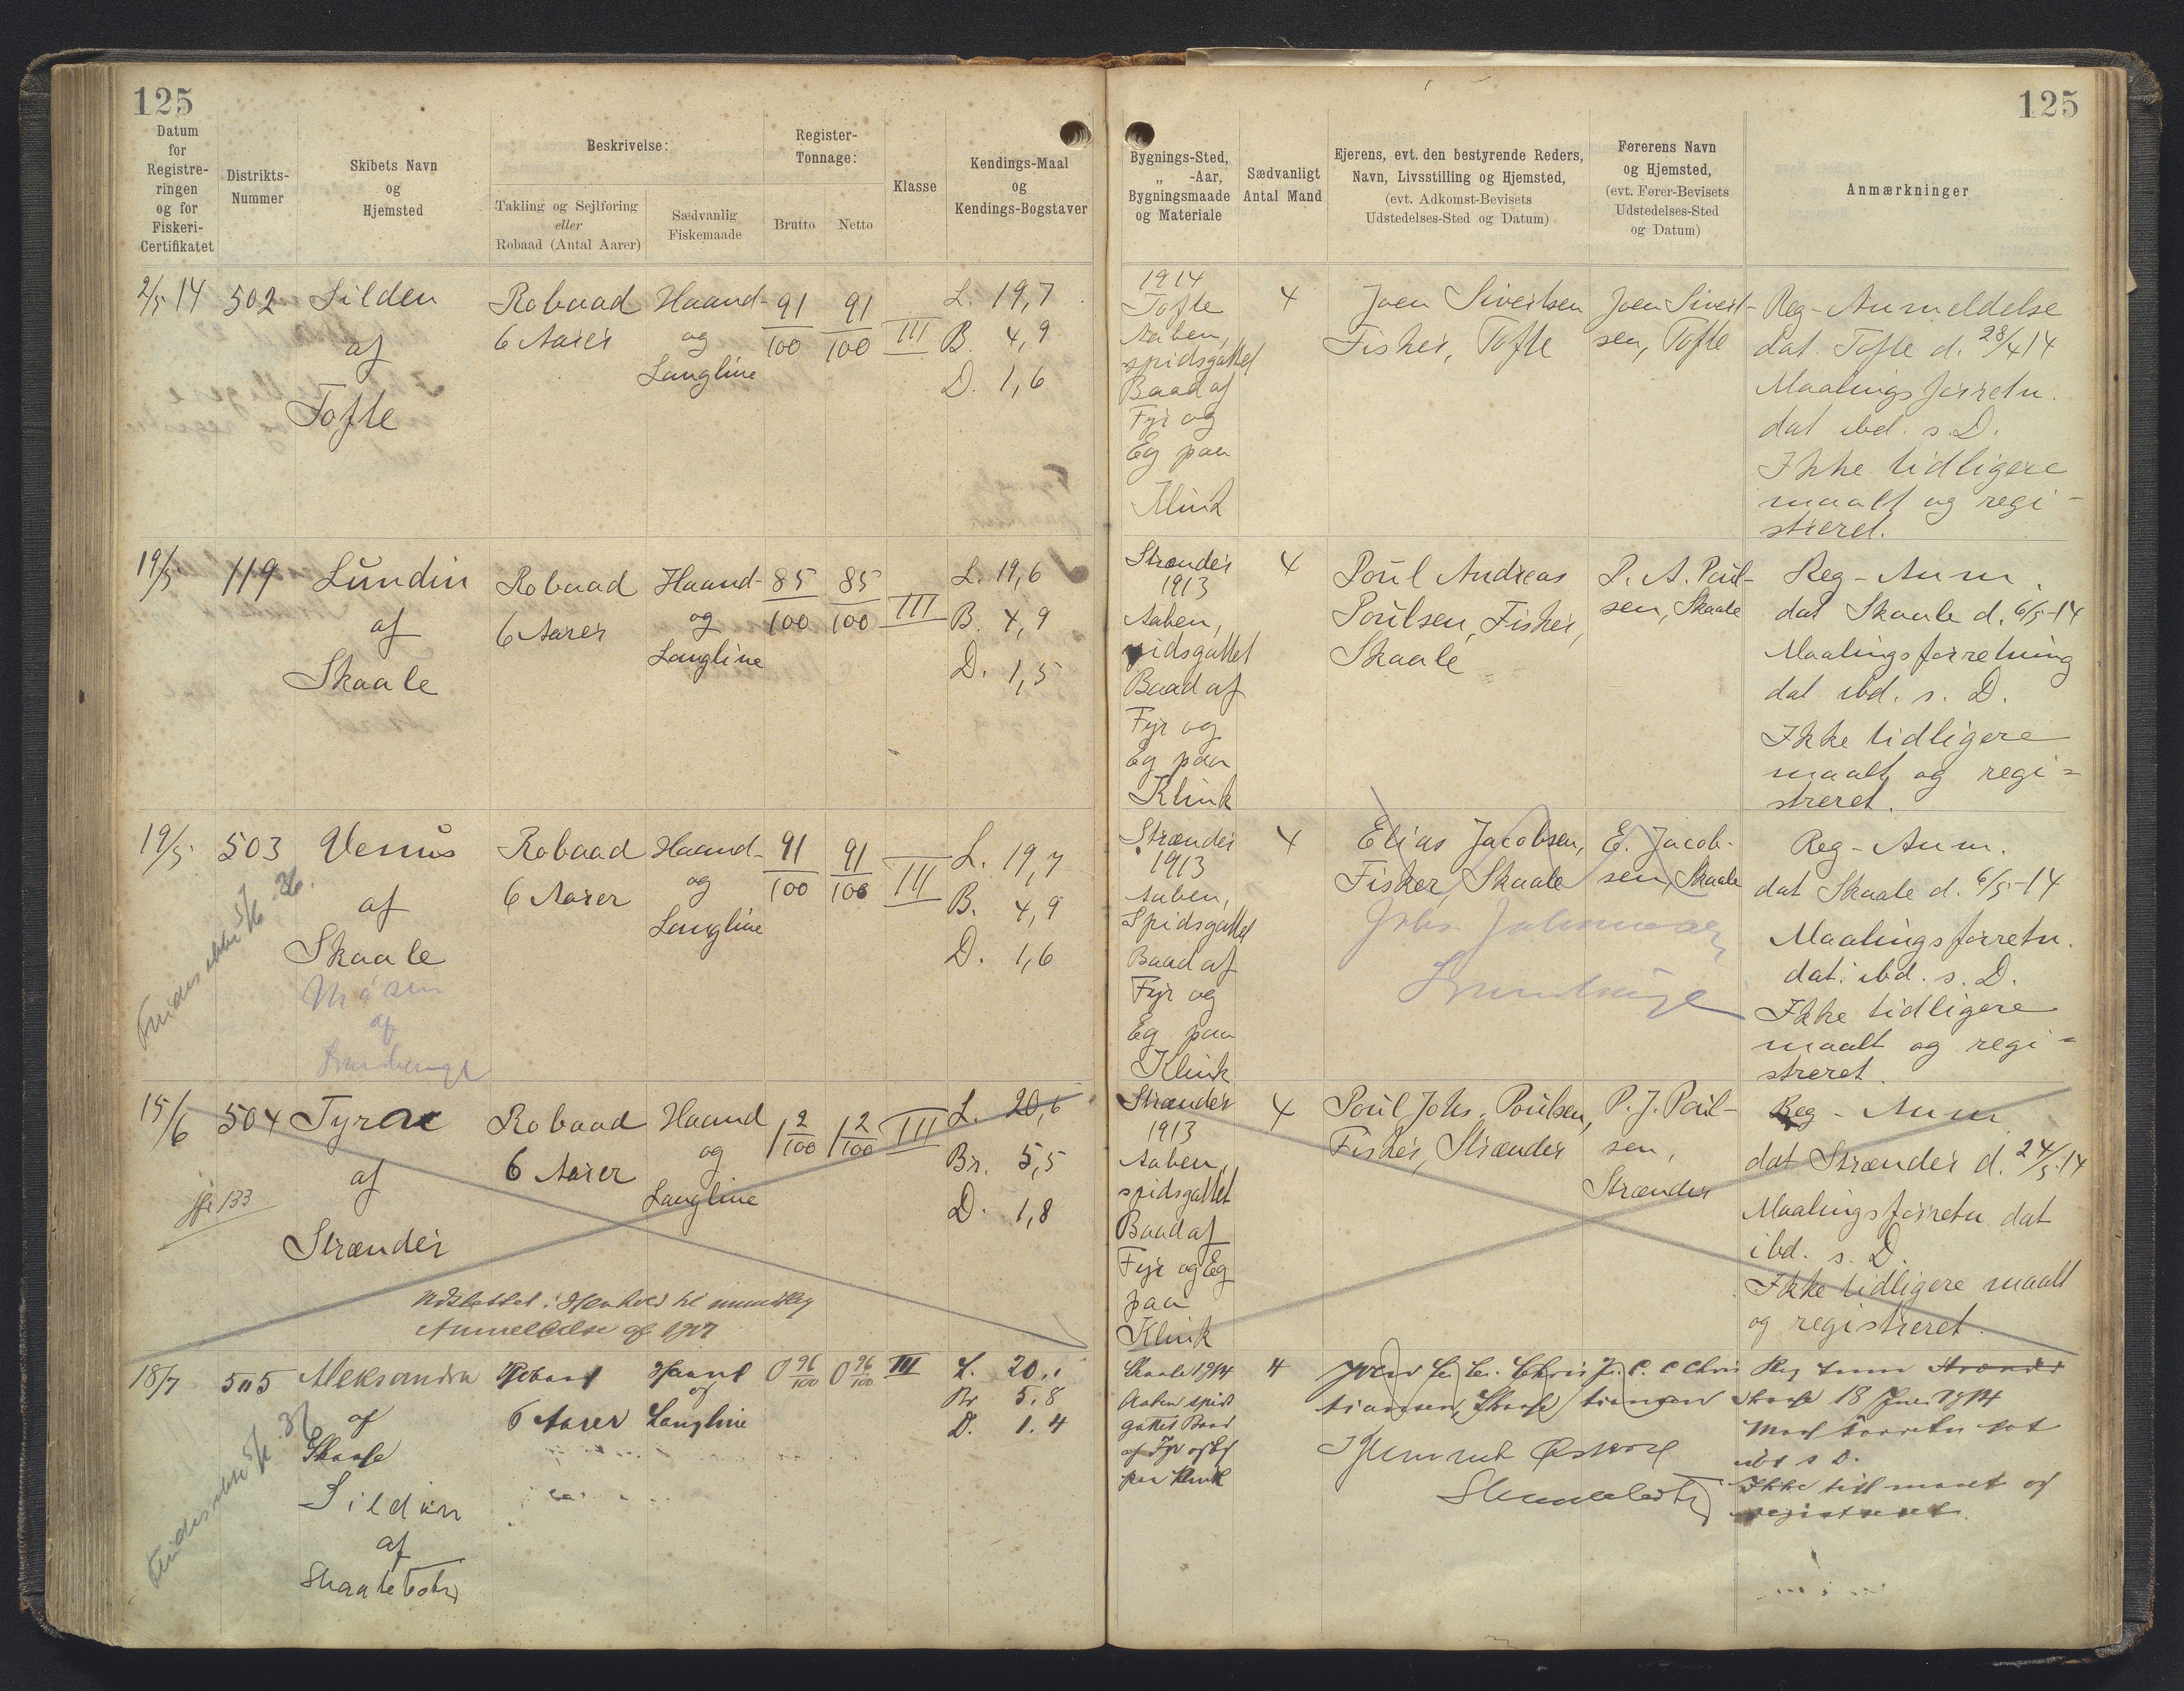 125
Datum
for
Registre-
ringen
og for
Fiskeri-
Certifikatet
Distrikts-
Nummer
Skibets Navn
og
Hjemsted
Beskrivelse:
Takling og Sejlføring
eller
Robaad (Antal Aarer)
Sædvanlig
Fiskemaade
Register-
Tonnage:
Brutto
Netto
Klasse
Kendings-Maal
og
Kendings-Bogstaver
2/5 14
502
Silden
af
Tofte
Robaad
6 Aarer
Haand-
og
Langline
91/100
91/100
III
L. 19,7
B. 4,9
D. 1,6
19/5
119
Lundin
af
Skaale
Robaad
6 Aarer
Haand-
og
Langline
85/100
85/100
III
L. 19,6
B. 4,9
D. 1,5
19/5
503
Venus
af
Skaale
af
Robaad
6 Aarer
Haand-
og
Langline
91/100
91/100
III
L. 19,7
B. 4,9
D. 1,6
Findes ikke 5/6 36.
15/6
504
Tyra
af
Strænder
Robaad
6 Aarer
Haand
og
Langline
1 2/100
1 2/100
III
L. 20,6
Br. 5,5
D. 1,8
133
Udslettet i Henhold til mundtlig
Anmeldelse af 1917
18/7
505
Aleksandra
af
Skaale
Sildin
af
Skaalebotn
Robaad
6 Aarer
Haand
og
Langline
0 96/100
0 96/100
III
L. 20,1
Br 5.8
D. 1.4
Findes ikke 5/6 36
125
Bygnings-Sted,
„ -Aar,
Bygningsmaade
og Materiale
Sædvanligt
Antal Mand
Ejerens, evt. den bestyrende Reders,
Navn, Livsstilling og Hjemsted,
(evt. Adkomst-Bevisets
Udstedelses-Sted og Datum)
Førerens Navn
og Hjemsted,
(evt. Fører-Bevisets
Udstedelses-Sted
og Datum)
Anmærkninger
1914
Tofte
Aaben,
spidsgattet
Baad af
Fyr og
Eg paa
Klink
4
Joen Sivertsen
Fisker, Tofte
Joen Sivert-
sen, Tofte
Reg-Anmeldelse
dat. Tofte d. 28/4 14
Maalingsforretn.
dat ibd. s. D.
Ikke tidligere
maalt og regi-
streret.
Strænder
1913
Aaben,
spidsgattet
Baad af
Fyr og
Eg paa
Klink
4
Poul Andreas
Poulsen, Fisker,
Skaale
P. A. Poul-
sen, Skaale
Reg-Anm.
dat Skaale d. 6/5-14
Maalingsforretning
dat ibd. s. D.
Ikke tidligere
maalt og regi=
streret.
Strænder
1913
Aaben,
Spidsgattet
Baad af
Fyr og
Eg paa
Klink
4
Elias Jacobsen,
Fisker, Skaale
E. Jacob-
sen, Skaale
Reg-Anm.
dat Skaale d. 6/5-14
Maalingsforretn.
dat. ibd. s. D.
Ikke tidligere
maalt og regi=
streret.
Strænder
1913
Aaben,
spidsgattet
Baad af
Fyr og Eg
paa
Klink
4
Poul Johs. Poulsen,
Fisker, Strænder
P. J. Poul-
sen,
Strænder
Reg-Anm
dat Strænder d. 24/5-14
Maalingsforretn dat
ibd. s. D.
Ikke tidligere maalt
og registreret.
Skaale 1914
Aaben spids
gattet Baad
af Fyr og Eg
paa Klink
4
Chris
tiansen, Skaale
C. C Chris
tiansen
Reg Anm Strænder
Skaale 18 Juni 1914
Maal forretn dat
ibd s D.
Ikke tidl maalt og
registreret.